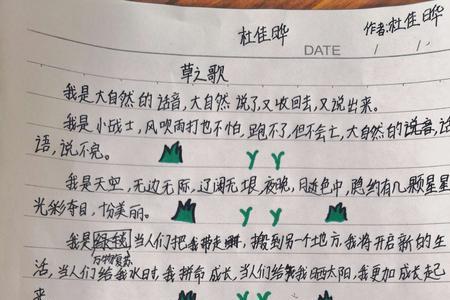 杜佳晔 作者:杜佳晔
DATE / /
草之歌
我是大自然的话音,大自然说了又收回去,又说出来。
我是小战士,风吹雨打也不怕,跑不了,但不会亡,大自然的说音,话
语,说不完。
我是天空,无边无际,辽阔无垠,夜晚,月色中,隐约有几颗星星
光彩夺目,份美丽。
我是绿毯 当人们把我带走,搬到另一个地方,我将开启新的生
万物复苏
活,当人们给我水时,我拼命成长,当人们给我晒太阳,我更加成长起
来